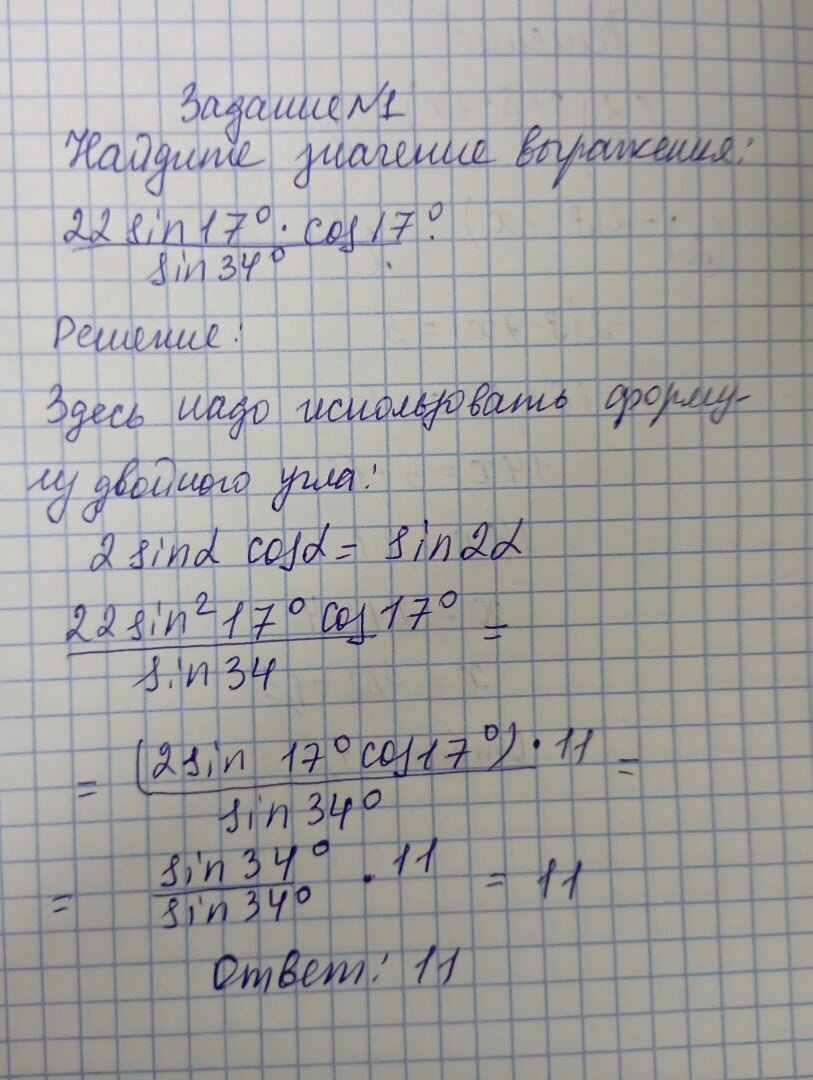 Задание №1
Найдите значение выражения:
22 sin 17° · cos 17°.
sin 34°
Решение:
Здесь надо использовать форму-
лу двойного угла:
2 sinα cosα = sin2α
22 sin² 17° cos 17° =
sin 34
= (2 sin 17° cos 17°) · 11 =
sin 34°
= sin 34° · 11 = 11
sin 34°
Ответ: 11